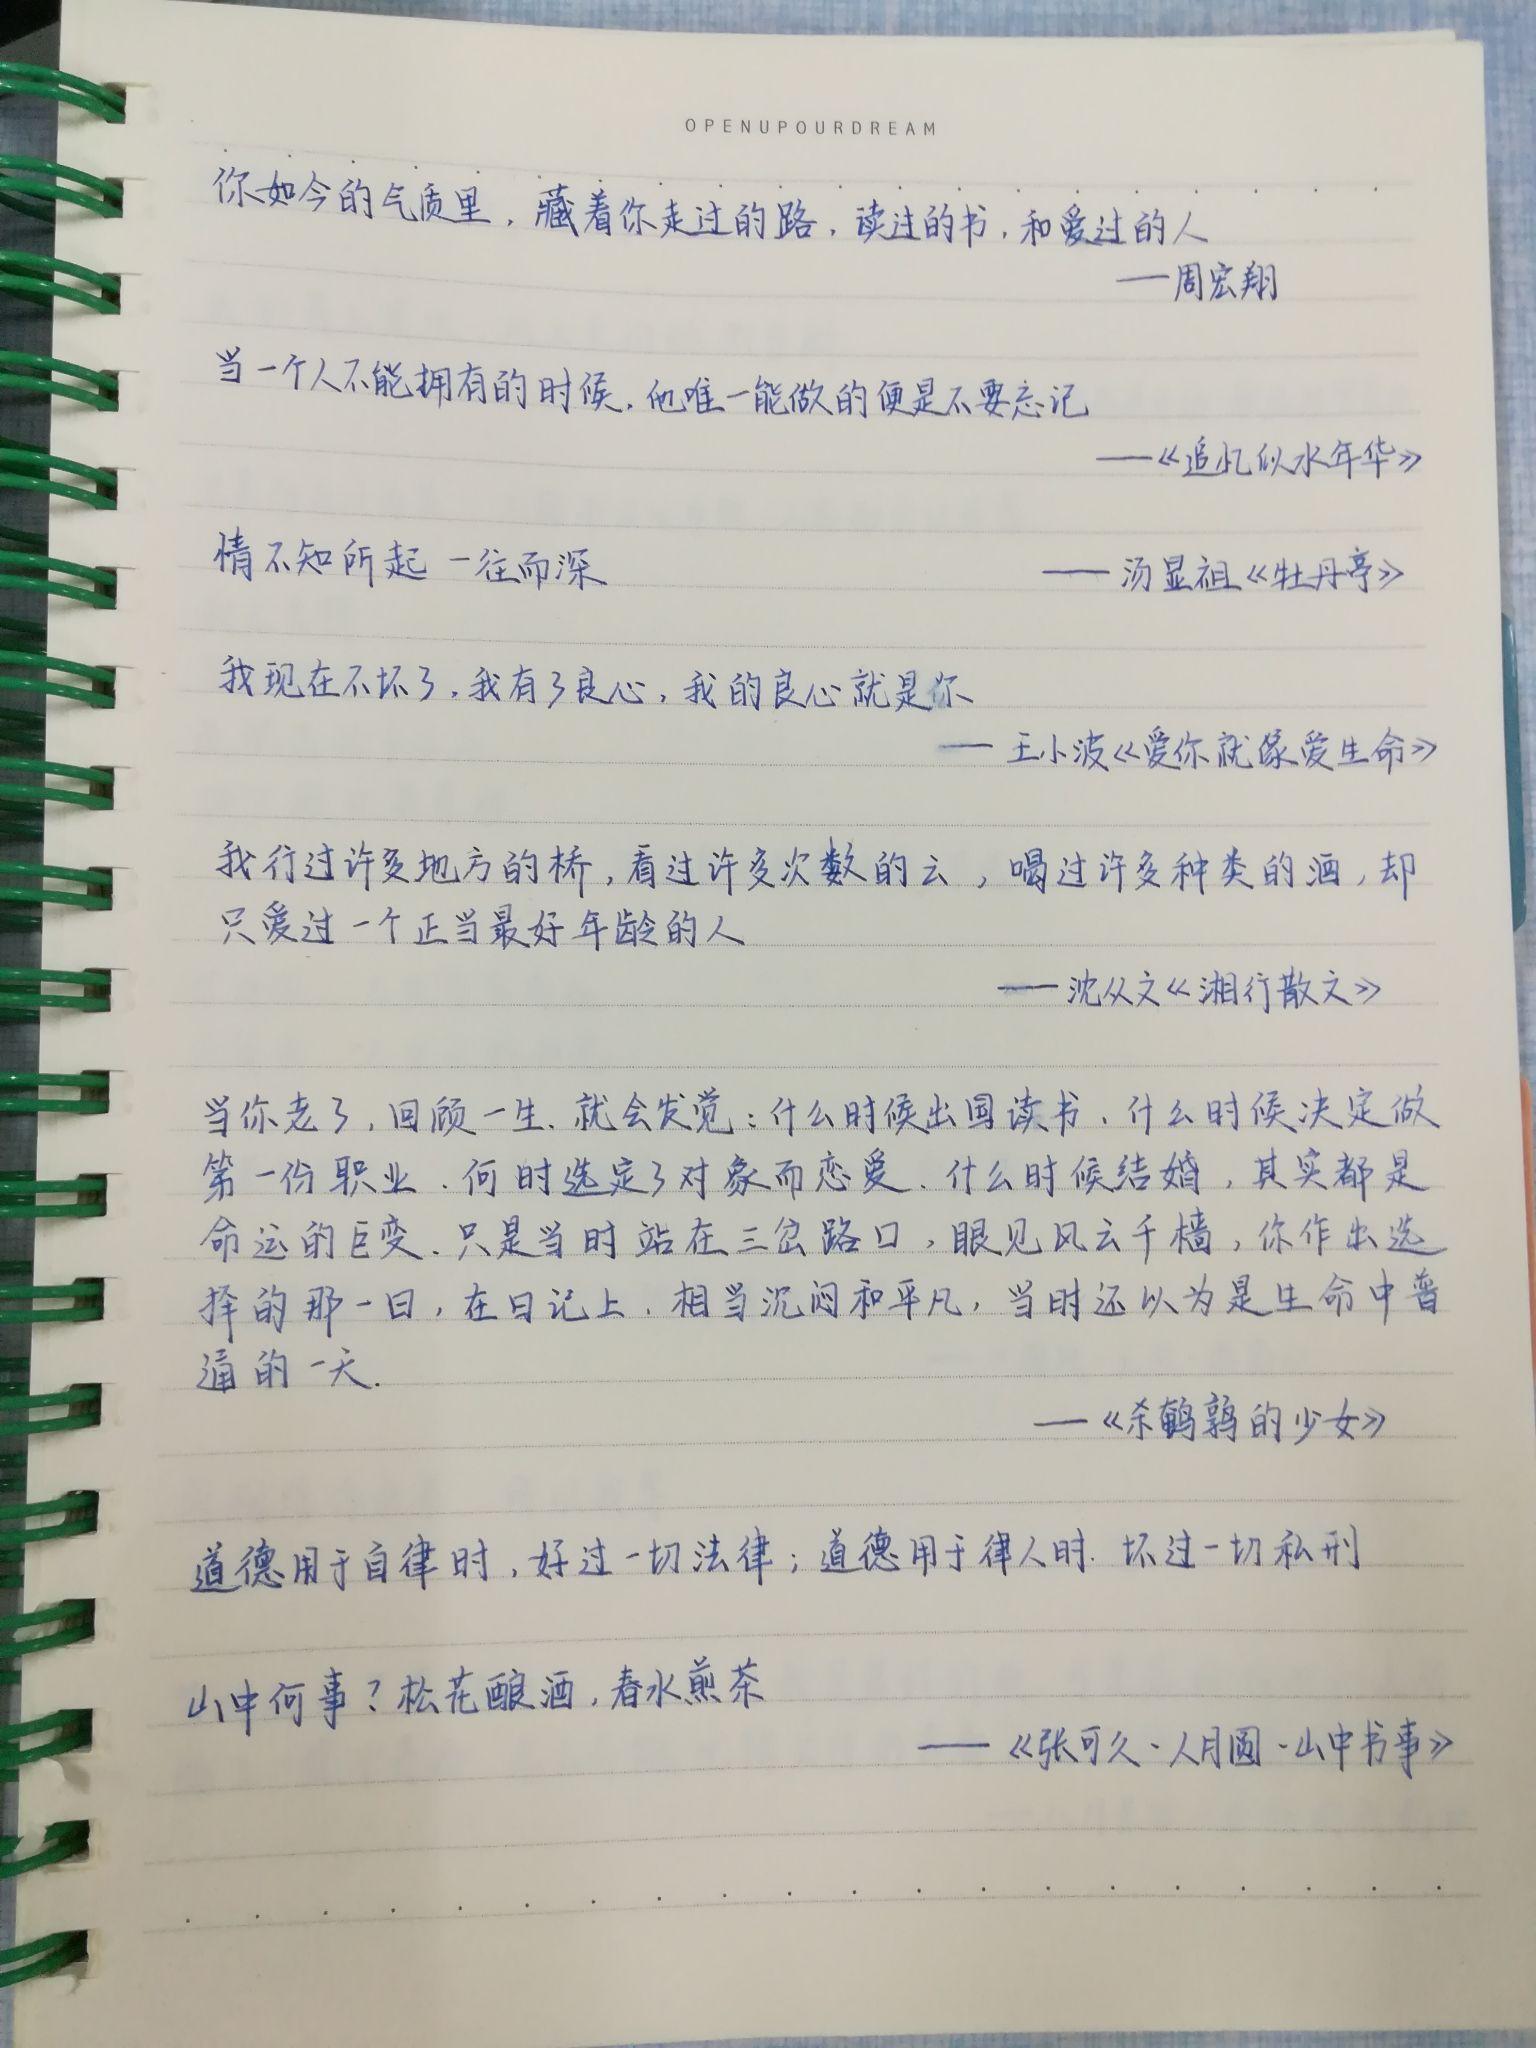 OPENUPOURDREAM
你如今的气质里，藏着你走过的路，读过的书，和爱过的人
——周宏翔
当一个人不能拥有的时候，他唯一能做的便是不要忘记
——《追忆似水年华》
情不知所起 一往而深 ——汤显祖《牡丹亭》
我现在不坏了，我有了良心，我的良心就是你
——王小波《爱你就像爱生命》
我行过许多地方的桥，看过许多次数的云，喝过许多种类的酒，却
只爱过一个正当最好年龄的人
——沈从文《湘行散文》
当你老了，回顾一生、就会发觉：什么时候出国读书、什么时候决定做
第一份职业、何时选定了对象而恋爱、什么时候结婚，其实都是
命运的巨变、只是当时站在三岔路口，眼见风云千樯，你作出选
择的那一日，在日记上、相当沉闷和平凡，当时还以为是生命中普
通的一天.
——《杀鹌鹑的少女》
道德用于自律时，好过一切法律；道德用于律人时、坏过一切私刑
山中何事？松花酿酒，春水煎茶
——《张可久·人月圆·山中书事》